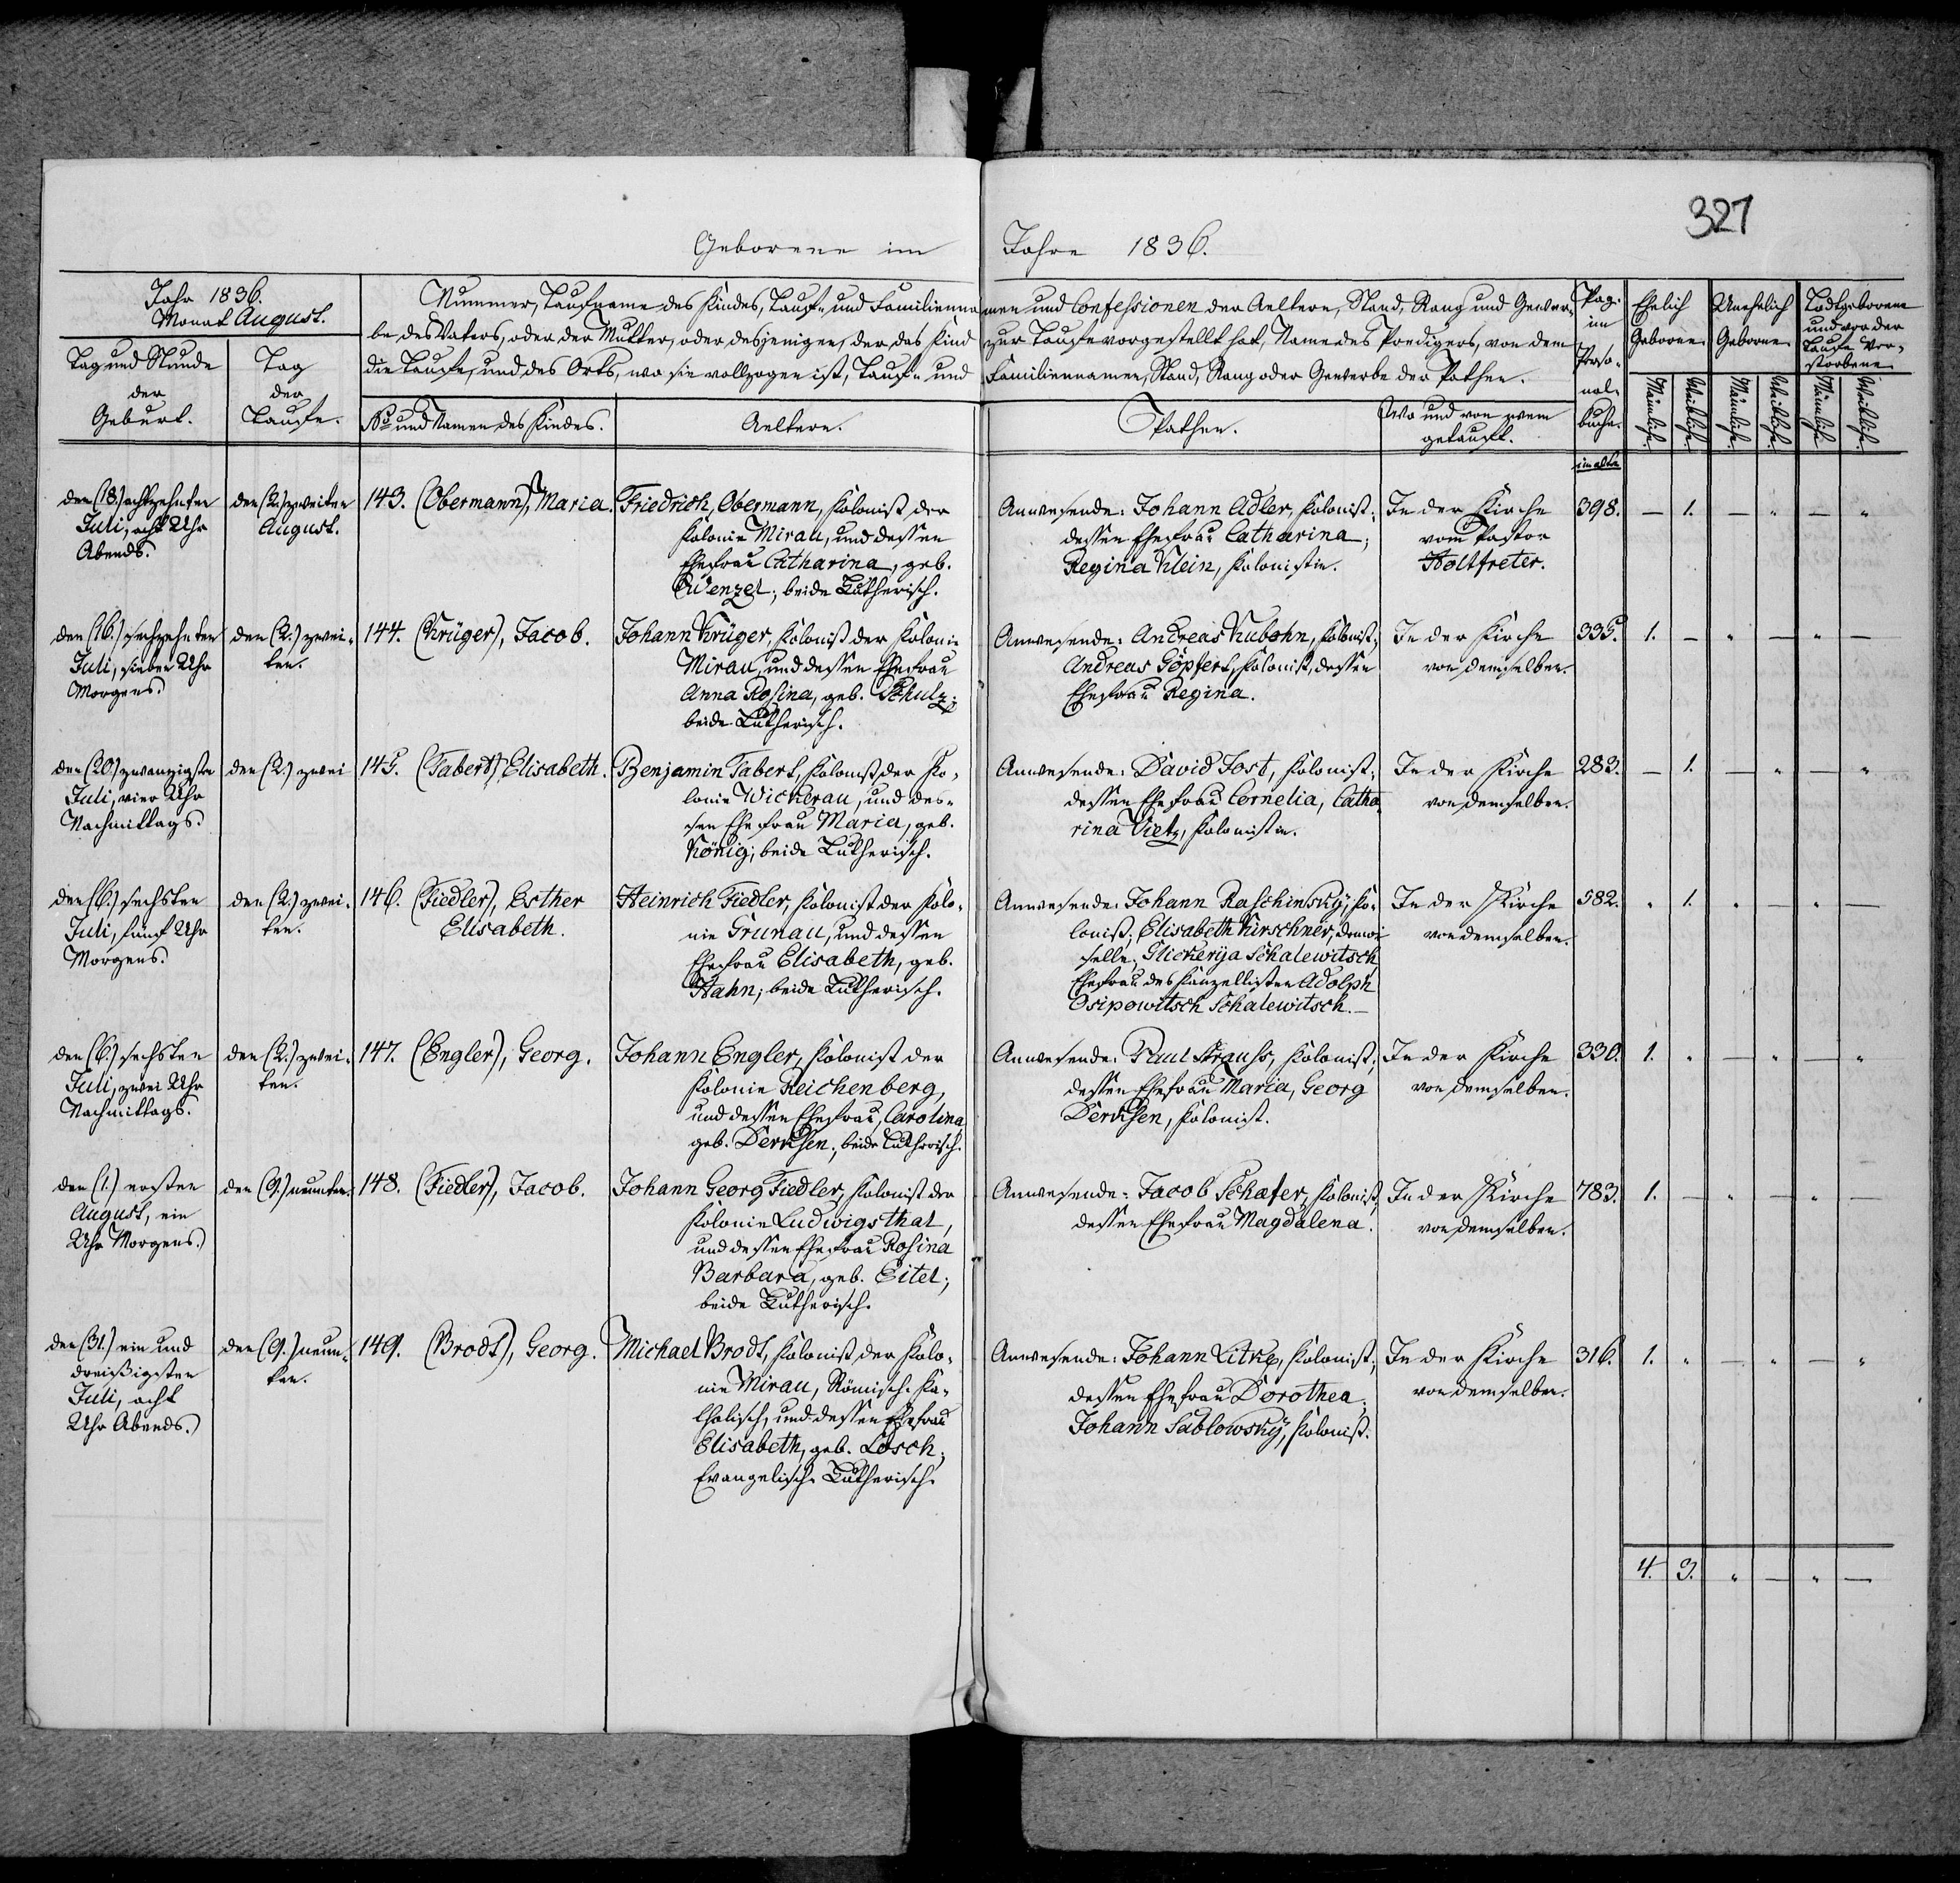 327
Geborene im Jahre 1836.
Jahr 1836.
Monat August.
Tag und Stunde
der
Geburt.
Tag
der
Taufe.
Nummer, Taufname des Kindes, Tauf- und Familienna
be des Vaters, oder der Mutter, oder desjenigen, der das Kind
die Taufe, und des Orts, wo sie vollzogen ist, Tauf- und
No und Namen des Kindes.
Aeltern.
men und Confessionen der Aeltern, Stand, Rang und Gewer-
zur Taufe vorgestellt hat, Name des Predigers, von dem
Familiennamen, Stand, Rang oder Gewerbe der Pathen.
Pathen.
Wo und von wem
getauft.
Pag:
im
Perso-
nal-
buche.
Ehelich
Geborne
Unehelich
Geborne
Todtgeborene
und vor der
Taufe Ver-
storbene
Männlich.
Weiblich.
Männlich.
Weiblich.
Männlich.
Weiblich.
im alten
den (18.) achtzehnten
Juli, acht Uhr
Abends.
den (2.) zweiten
August.
143. (Obermann), Maria.
Friedrich Obermann, Kolonist der
Kolonie Mirau, und dessen
Ehefrau Catharina, geb.
Wenzel; beide Lutherisch.
Anwesende: Johann Adler, Kolonist;
dessen Ehefrau Catharina;
Regina Klein, Kolonistin.
In der Kirche
vom Pastor
Holtfreter.
398. — 1. — „ — „
den (16.) sechzehnten
Juli, sieben Uhr
Morgens.
den (2.) zwei-
ten.
144. (Krüger), Jacob.
Johann Krüger, Kolonist der Kolonie
Mirau, und dessen Ehefrau
Anna Rosina, geb. Schulz;
beide Lutherisch.
Anwesende: Andreas Kubohn, Kolonist;
Andreas Göpfert, Kolonist, dessen
Ehefrau Regina.
In der Kirche
von demselben.
335. 1. — „ — „ —
den (20.) zwanzigsten
Juli, vier Uhr
Nachmittags.
den (2.) zwei
145. (Tabert), Elisabeth.
Benjamin Tabert, Kolonist der Ko-
lonie Wickerau, und des-
sen Ehefrau Maria, geb.
König; beide Lutherisch.
Anwesende: David Jost, Kolonist;
dessen Ehefrau Cornelia, Catha
rina Vietz, Kolonistin.
In der Kirche
von demselben.
283. — 1. — „ — „
den (6.) sechsten
Juli, fünf Uhr
Morgens.
den (2.) zwei-
ten.
146. (Fiedler), Esther
Elisabeth.
Heinrich Fiedler, Kolonist der Kolo-
nie Grunau, und dessen
Ehefrau Elisabeth, geb.
Hahn; beide Lutherisch.
Anwesende: Johann Raschinsky, Ko-
lonist; Elisabeth Kirschner, Demoi
selle; Glickerija Schalewitsch,
Ehefrau des Kanzellisten Adolph
Osipowitsch Schalewitsch.—
In der Kirche
von demselben.
582. „ 1. „ — „ —
den (6.) sechsten
Juli, zwei Uhr
Nachmittags.
den (2.) zwei-
ten.
147. (Engler), Georg.
Johann Engler, Kolonist der
Kolonie Reichenberg,
und dessen Ehefrau, Carolina
geb. Derksen; beide Lutherisch.
Anwesende: Paul Strauss, Kolonist;
dessen Ehefrau Maria, Georg
Derksen, Kolonist.
In der Kirche
von demselben.
330. 1. „ — „ — „
den (1.) ersten
August, ein
Uhr Morgens.
den (9.) neunten.
148. (Fiedler), Jacob.
Johann Georg Fiedler, Kolonist der
Kolonie Ludwigsthal,
und dessen Ehefrau Rosina
Barbara, geb. Eitel;
beide Lutherisch.
Anwesende: Jacob Schafer, Kolonist,
dessen Ehefrau Magdalena.
In der Kirche
von demselben.
783. 1. — „ — „ —
den (31.) ein und
dreißigsten
Juli, acht
Uhr Abends.
den (9.) neun-
ten.
149. (Brodt), Georg.
Michael Brodt, Kolonist der Kolo-
nie Mirau, Römisch-Ka-
tholisch, und dessen Ehefrau
Elisabeth, geb. Losch;
Evangelisch Lutherisch.
Anwesende: Johann Litke, Kolonist;
dessen Ehefrau Dorothea;
Johann Sablowsky, Kolonist.
In der Kirche
von demselben.
316. 1. „ — „ — „
4. 3. „ — „ —